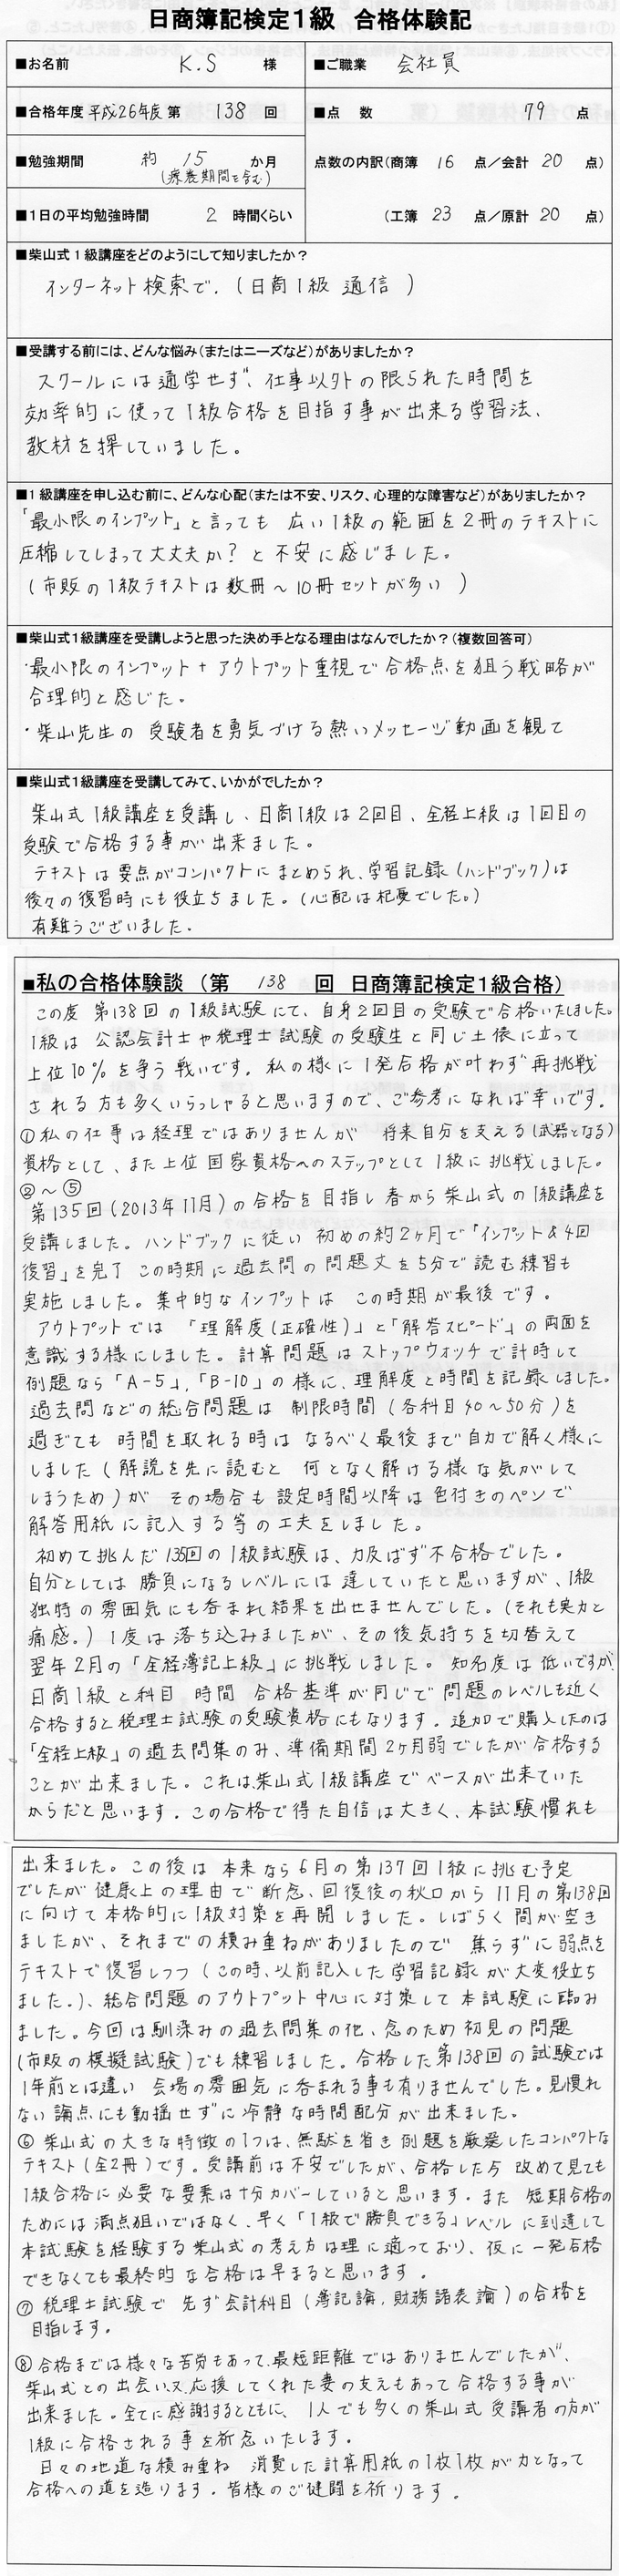 日商簿記検定1級 合格体験記
■お名前 K.S 様 ■ご職業 会社員
■合格年度 平成26年度 第 138 回 ■点 数 79 点
■勉強期間 約 15 か月 (療養期間を含む) 点数の内訳(商簿 16 点/会計 20 点)
■1日の平均勉強時間 2 時間くらい (工簿 23 点/原計 20 点)
■柴山式1級講座をどのようにして知りましたか?
インターネット検索で.(日商1級 通信 )
■受講する前には、どんな悩み(またはニーズなど)がありましたか?
スクールには通学せず、仕事以外の限られた時間を
効率的に使って1級合格を目指す事が出来る学習法、
教材を探していました。
■1級講座を申し込む前に、どんな心配(または不安、リスク、心理的な障害など)がありましたか?
「最小限のインプット」と言っても 広い1級の範囲を2冊のテキストに
圧縮してしまって大丈夫か?と不安に感じました。
(市販の1級テキストは数冊〜10冊セットが多い )
■柴山式1級講座を受講しようと思った決め手となる理由はなんでしたか?(複数回答可)
・最小限のインプット+アウトプット重視で合格点を狙う戦略が
合理的と感じた。
・柴山先生の 受験者を勇気づける熱いメッセージ動画を観て
■柴山式1級講座を受講してみて、いかがでしたか?
柴山式1級講座を受講し、日商1級は2回目、全経上級は1回目の
受験で合格する事が出来ました。
テキストは要点がコンパクトにまとめられ、学習記録(ハンドブック)は
後々の復習時にも役立ちました。(心配は杞憂でした。)
有難うございました.
■私の合格体験談(第 138 回 日商簿記検定1級合格)
この度 第138回の1級試験にて、自身2回目の受験で合格いたしました。
1級は 公認会計士や税理士試験の受験生と同じ土俵に立って
上位10%を争う戦いです。私の様に1発合格が叶わず再挑戦
される方も多くいらっしゃると思いますので、ご参考になれば幸いです.
①私の仕事は経理ではありませんが 将来自分を支える(武器となる)
資格として、また上位国家資格へのステップとして1級に挑戦しました。
②〜⑤
第135回(2013年11月)の合格を目指し春から柴山式の1級講座を
受講しました。ハンドブックに従い初めの約2ヶ月で「インプット&4回
復習」を完了 この時期に過去問の問題文を5分で読む練習も
実施しました。集中的なインプットは この時期が最後です。
アウトプットでは 「理解度(正確性)」と「解答スピード」の両面を
意識する様にしました。計算問題はストップウォッチで計時して
例題なら「A-5」,「B-10」の様に、理解度と時間を記録しました。
過去問などの総合問題は 制限時間(各科目40〜50分)を
過ぎても 時間を取れる時は なるべく最後まで自力で解く様に
しました(解説を先に読むと 何となく解ける様な気がして
しまうため)が その場合も設定時間以降は色付きのペンで
解答用紙に記入する等の工夫をしました。
初めて挑んだ135回の1級試験は、力及ばず不合格でした。
自分としては 勝負になるレベルには達していたと思いますが、1級
独特の雰囲気にも呑まれ結果を出せませんでした。(それも実力と
痛感。)1度は落ち込みましたが、その後気持ちを切替えて
翌年2月の「全経簿記上級」に挑戦しました。知名度は低いですが
日商1級と科目 時間 合格基準が同じで問題のレベルも近く
合格すると税理士試験の受験資格にもなります.追加で購入したのは
「全経上級」の過去問集のみ、準備期間2ヶ月弱でしたが合格する
ことが出来ました。これは柴山式1級講座でベースが出来ていた
からだと思います.この合格で得た自信は大きく、本試験慣れも
出来ました。この後は本来なら6月の第137回1級に挑む予定
でしたが健康上の理由で断念、回復後の秋口から11月の第138回
に向けて本格的に1級対策を再開しました。しばらく間が空き
ましたが、それまでの積み重ねがありましたので 焦らずに弱点を
テキストで復習しつつ(この時、以前記入した学習記録が大変役立ち
ました.)、総合問題のアウトプット中心に対策して本試験に臨み
ました。今回は馴染みの過去問集の他、念のため初見の問題
(市販の模擬試験)でも練習しました。合格した第138回の試験では
1年前とは違い 会場の雰囲気に呑まれる事も有りませんでした。見慣れ
ない論点にも動揺せずに冷静な時間配分が出来ました。
⑥ 柴山式の大きな特徴の1つは、無駄を省き例題を厳選したコンパクトな
テキスト(全2冊)です。受講前は不安でしたが、合格した今 改めて見ても
1級合格に必要な要素は十分カバーしていると思います.また 短期合格の
ためには満点狙いではなく、早く「1級で勝負できる」レベルに到達して
本試験を経験する柴山式の考え方は理に適っており、仮に一発合格
できなくても最終的な合格は早まると思います.
⑦ 税理士試験で 先ず会計科目(簿記論,財務諸表論)の合格を
目指します.
⑧合格までは様々な苦労もあって、最短距離ではありませんでしたが、
柴山式との出会い、又応援してくれた妻の支えもあって合格する事が
出来ました。全てに感謝するとともに、1人でも多くの柴山式受講者の方が
1級に合格される事を祈念いたします.
日々の地道な積み重ね 消費した計算用紙の1枚1枚が力となって
合格への道を造ります.皆様のご健闘を祈ります.